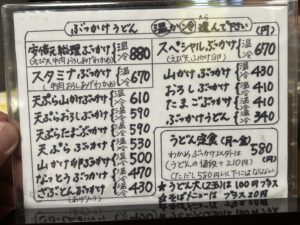 ぶっかけうどん
温か冷選んで下さい (円)
安倍元総理ぶっかけ 温 冷 880
スタミナぶっかけ 温 冷 670
天ぷら山かけぶっかけ 温 冷 610
天ぷらおろしぶっかけ 温 冷 590
天ぷらたまごぶっかけ 温 冷 570
天ぷらぶっかけ 温 冷 530
山かけ卵ぶっかけ 温 冷 500
なっとうぶっかけ 温 冷 470
ざぶとんぶっかけ 温 冷 430
スペシャルぶっかけ 温 冷 670
山かけぶっかけ 温 冷 430
おろしぶっかけ 温 冷 410
たまごぶっかけ 温 冷 390
ぶっかけうどん 温 冷 340
うどん定食(月〜金)
わかめぶっかけ以外は 580
(うどんの値段+210円) (円)
(ただし580円以下にはならない)
★うどん大(2玉)は100円プラス
★そばメニューはプラス20円